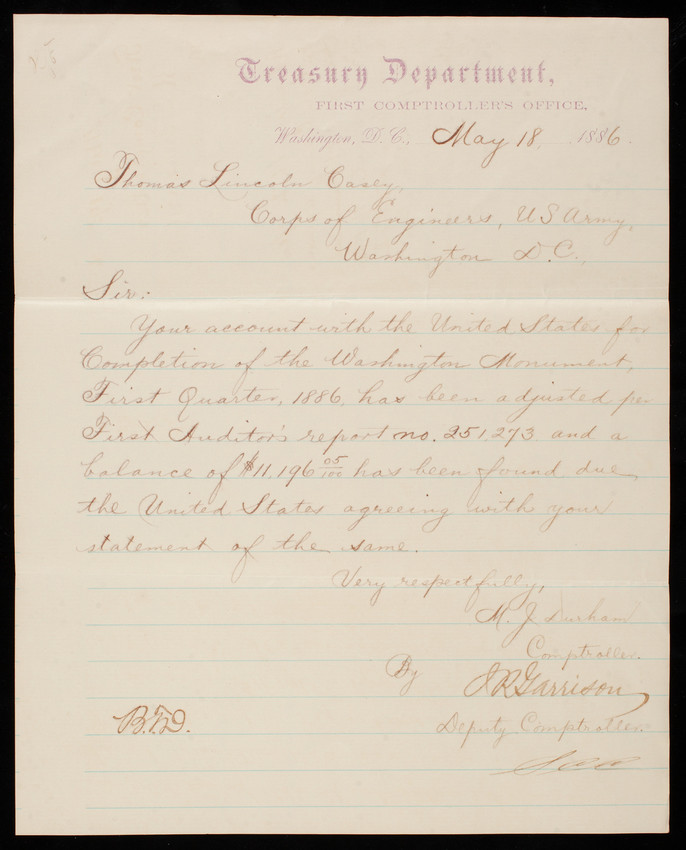 Treasury Department,
FIRST COMPTROLLER'S OFFICE,
Washington, D.C., May 18, 1886.
Thomas Lincoln Casey,
Corps of Engineers, U S Army,
Washington D.C.,
Sir:
Your account with the United States for
Completion of the Washington Monument,
First Quarter, 1886, has been adjusted per
First Auditor's report no. 251,273 and a
balance of $11,196 05/100 has been found due
the United States agreeing with your
statement of the same.
Very respectfully,
M. J. Durham
Comptroller.
By J R Garrison
Deputy Comptroller.
B.F.D.